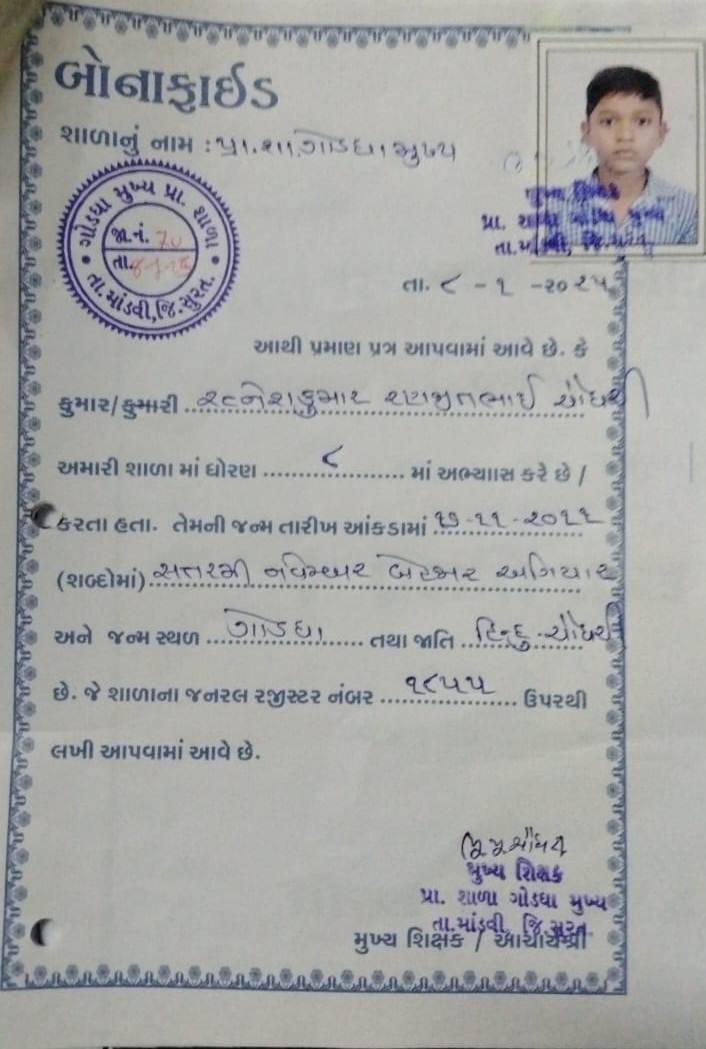 બોનાફાઈડ
શાળાનું નામ : પ્રા.શા. ગોડધા મુખ્ય
મુખ્ય શિક્ષક
પ્રા. શાળા ગોડધા મુખ્ય
તા.માંડવી, જિ.સુરત
ગોડધા મુખ્ય પ્રા. શાળા
જા.નં. 70
તા.
તા.માંડવી, જિ.સુરત.
તા. ૮ - ૧ - ૨૦૨૫
આથી પ્રમાણ પત્ર આપવામાં આવે છે. કે
કુમાર/કુમારી રત્નેશકુમાર રણજીતભાઈ ચૌધરી
અમારી શાળા માં ધોરણ ૮ માં અભ્યાસ કરે છે /
કરતા હતા. તેમની જન્મ તારીખ આંકડામાં ૧૭-૧૧-૨૦૧૧
(શબ્દોમાં) સત્તરમી નવેમ્બર બેહજાર અગિયાર
અને જન્મ સ્થળ ગોડધા તથા જાતિ હિન્દુ-ચૌધરી
છે. જે શાળાના જનરલ રજીસ્ટર નંબર ૧૮૫૫ ઉપરથી
લખી આપવામાં આવે છે.
મુખ્ય શિક્ષક
પ્રા. શાળા ગોડધા મુખ્ય
તા.માંડવી, જિ.સુરત
મુખ્ય શિક્ષક / આચાર્યશ્રી